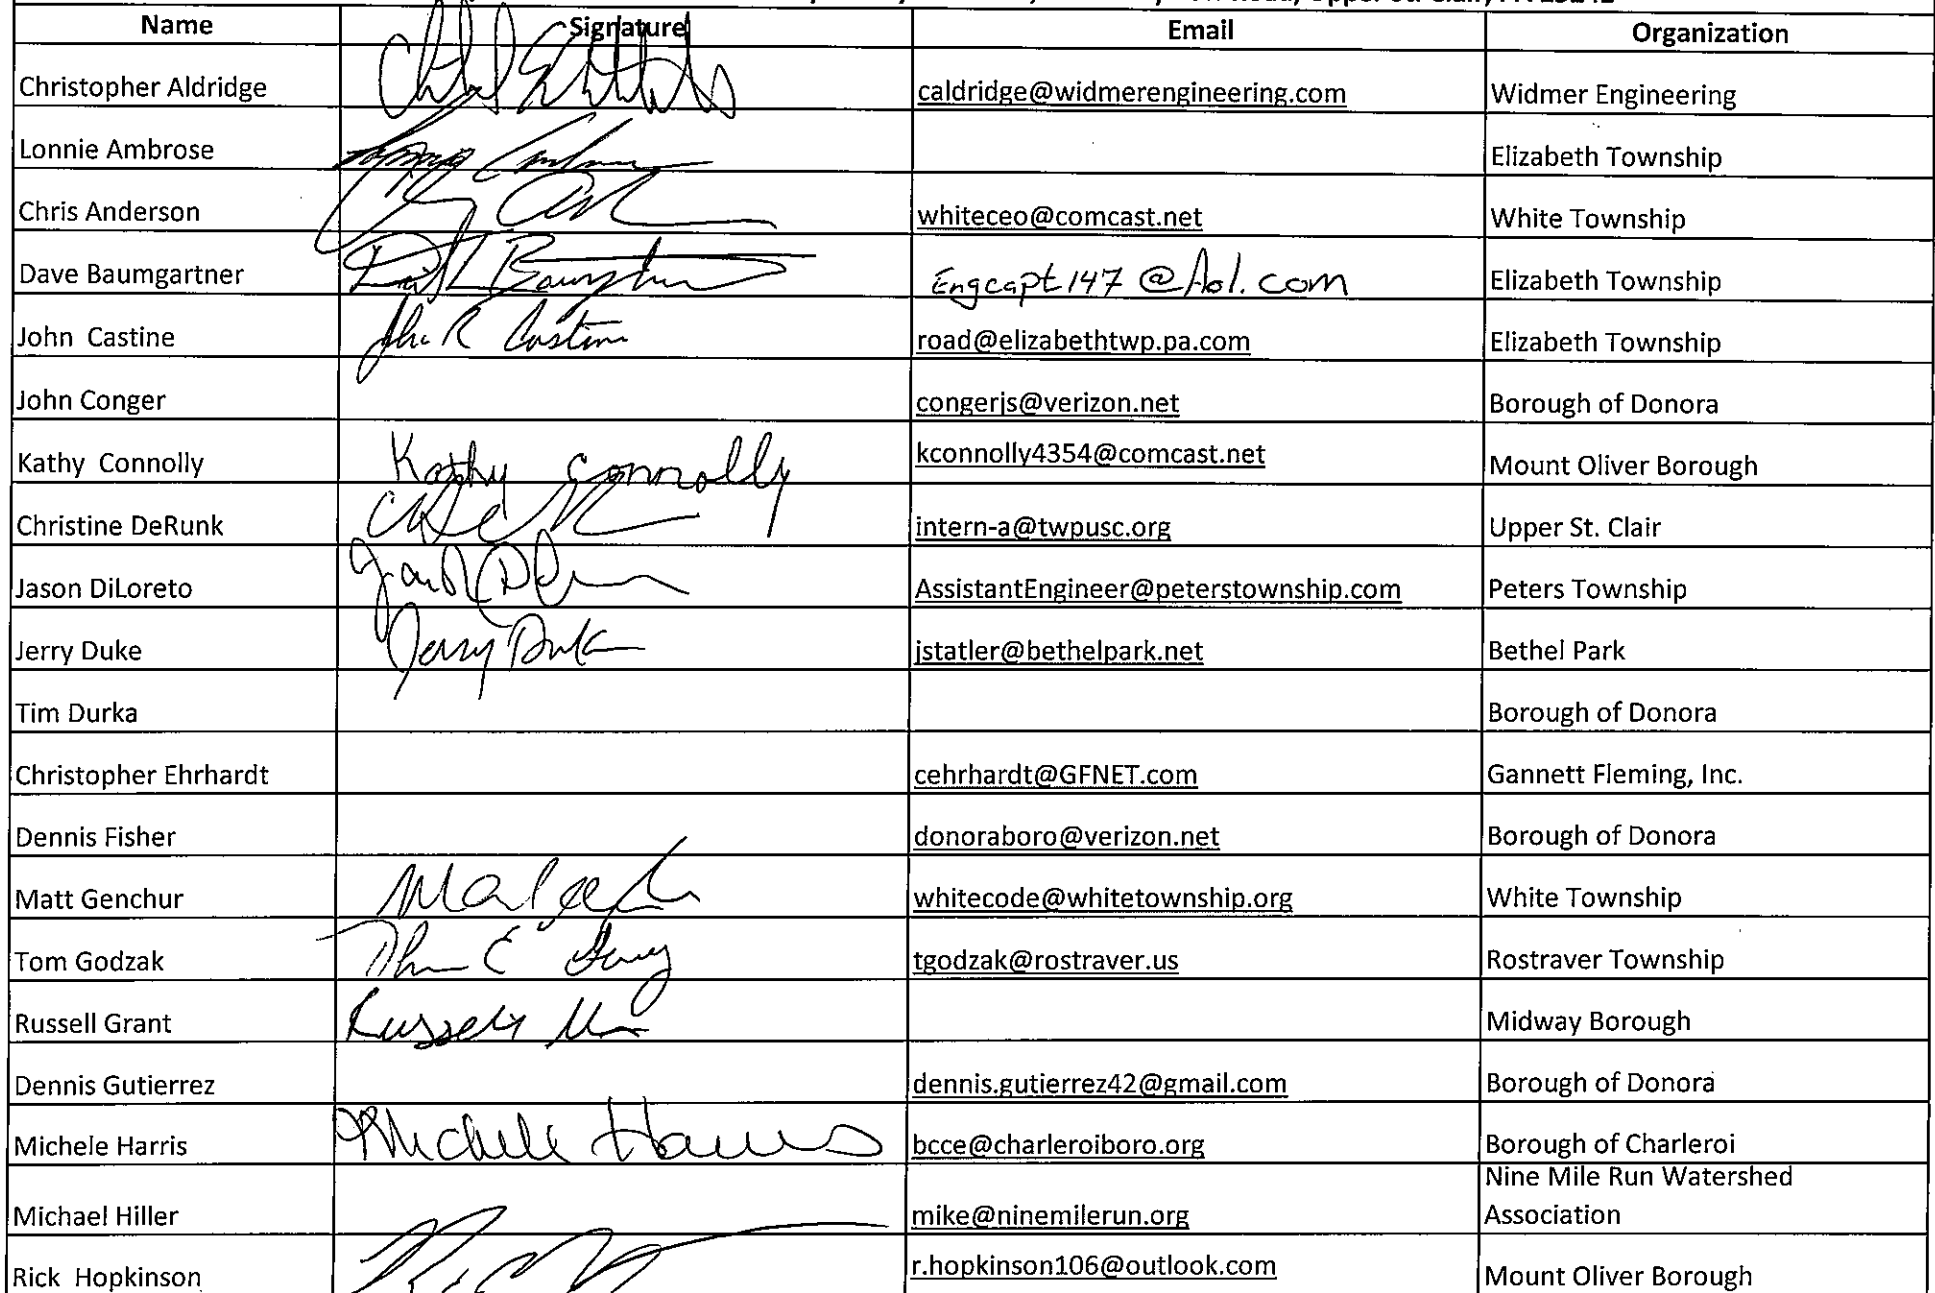 Name Signature Email Organization
Christopher Aldridge caldridge@widmerengineering.com Widmer Engineering
Lonnie Ambrose Elizabeth Township
Chris Anderson whiteceo@comcast.net White Township
Dave Baumgartner Engcapt147@Aol.com Elizabeth Township
John Castine John R Castine road@elizabethtwp.pa.com Elizabeth Township
John Conger congerjs@verizon.net Borough of Donora
Kathy Connolly Kathy Connolly kconnolly4354@comcast.net Mount Oliver Borough
Christine DeRunk intern-a@twpusc.org Upper St. Clair
Jason DiLoreto AssistantEngineer@peterstownship.com Peters Township
Jerry Duke Jerry Duke jstatler@bethelpark.net Bethel Park
Tim Durka Borough of Donora
Christopher Ehrhardt cehrhardt@GFNET.com Gannett Fleming, Inc.
Dennis Fisher donoraboro@verizon.net Borough of Donora
Matt Genchur whitecode@whitetownship.org White Township
Tom Godzak tgodzak@rostraver.us Rostraver Township
Russell Grant Russell Midway Borough
Dennis Gutierrez dennis.gutierrez42@gmail.com Borough of Donora
Michele Harris Michele Harris bcce@charleroiboro.org Borough of Charleroi
Nine Mile Run Watershed
Michael Hiller mike@ninemilerun.org Association
Rick Hopkinson r.hopkinson106@outlook.com Mount Oliver Borough